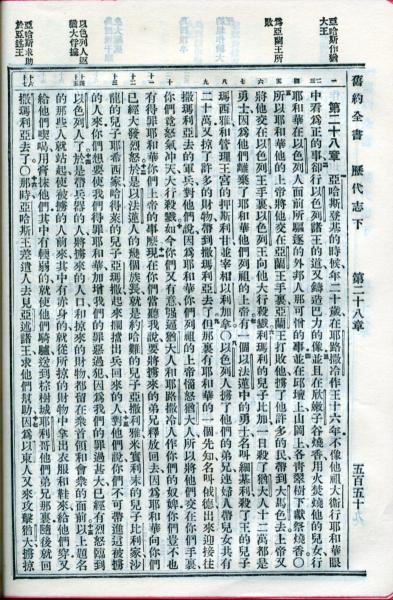 舊約全書 歷代志下 第二十八章 五百五十九
亞哈斯作猶
大王
爲亞蘭王所
敗
以色列人返
猶大俘擄
亞哈斯求助
於亞述王
第二十八章 亞哈斯登基的時候年二十歲在耶路撒冷作王十六年不像他祖大衛行耶和華眼
中看爲正的事卻行以色列諸王的道又鑄造巴力的像並且在欣嫩子谷燒香用火焚燒他的兒女行
耶和華在以色列人面前所驅逐的外邦人那可憎的事並在邱壇上山岡上各青翠樹下獻祭燒香〇
所以耶和華他的上帝將他交在亞蘭王手裏亞蘭王打敗他擄了他許多的民帶到大馬色去上帝又
將他交在以色列王手裏以色列王向他大行殺戮利瑪利的兒子比加一日殺了猶大十二萬都是
勇士因爲他們離棄了耶和華他們列祖的上帝有一個以法蓮中的勇士名叫細基利殺了王的兒子
瑪西雅和管理王宮的押斯利甘並宰相以利加拿〇以色列人擄了他們的弟兄連婦人帶兒女共有
二十萬又掠了許多的財物帶到撒瑪利亞去了但那裏有耶和華的一個先知名叫俄德出來迎接往
撒瑪利亞去的軍兵對他們說因爲耶和華你們列祖的上帝惱怒猶大人所以將他們交在你們手裏
你們竟怒氣冲天大行殺戮如今你們又有意强逼猶大人和耶路撒冷人作你們的奴婢你們豈不也
有得罪耶和華你們上帝的事麽現在你們當聽我說要將擄來的弟兄釋放回去因爲耶和華向你們
已經大發烈怒於是以法蓮人的幾個族長就是約哈難的兒子亞撒利雅米實利末的兒子比利家沙
龍的兒子耶希西家哈得萊的兒子亞瑪撒起來攔擋出兵回來的人對他們說你們不可帶進這被擄
的人來你們想要使我們得罪耶和華加增我們的罪惡過犯因爲我們的罪過甚大已經有烈怒臨到
以色列人了於是帶兵器的人將擄來的人口和掠來的財物都留在衆首領和會衆的面前以上題名
的那些人就站起使被擄的人前來其中有赤身的就從所掠的財物中拿出衣服和鞋來給他們穿又
給他們喫喝用膏抹他們其中有輭弱的就使他們騎驢送到棕樹城耶利哥他們弟兄那裏隨後就回
撒瑪利亞去了〇那時亞哈斯王差遣人去見亞述諸王求他們幫助因爲以東人又來攻擊猶大擄掠